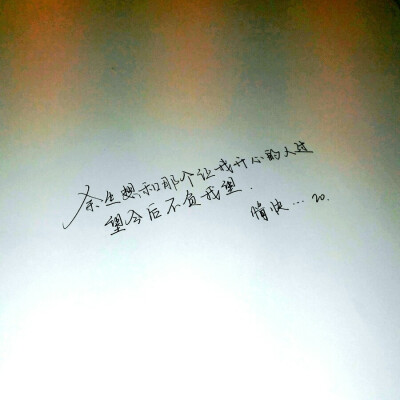 余生想和那个让我开心的人过
望今后不负我望.
情快...20.